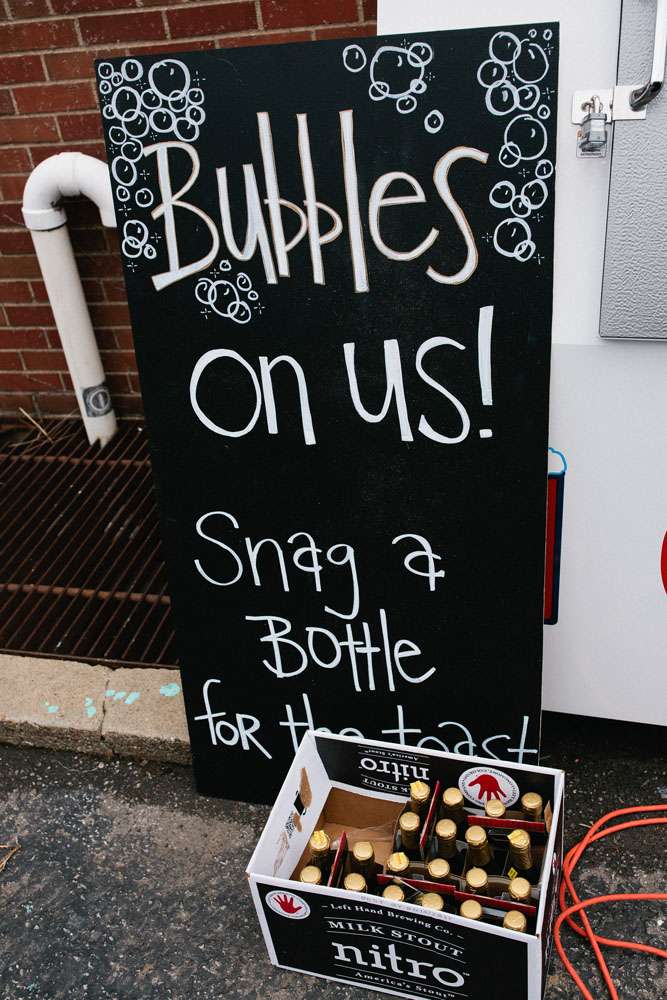 Bubbles
on us!
Snag a
Bottle
for the toast
nitro
MILK STOUT
America's Stout
– Left Hand Brewing Co. –
MILK STOUT
nitro
America's Stout